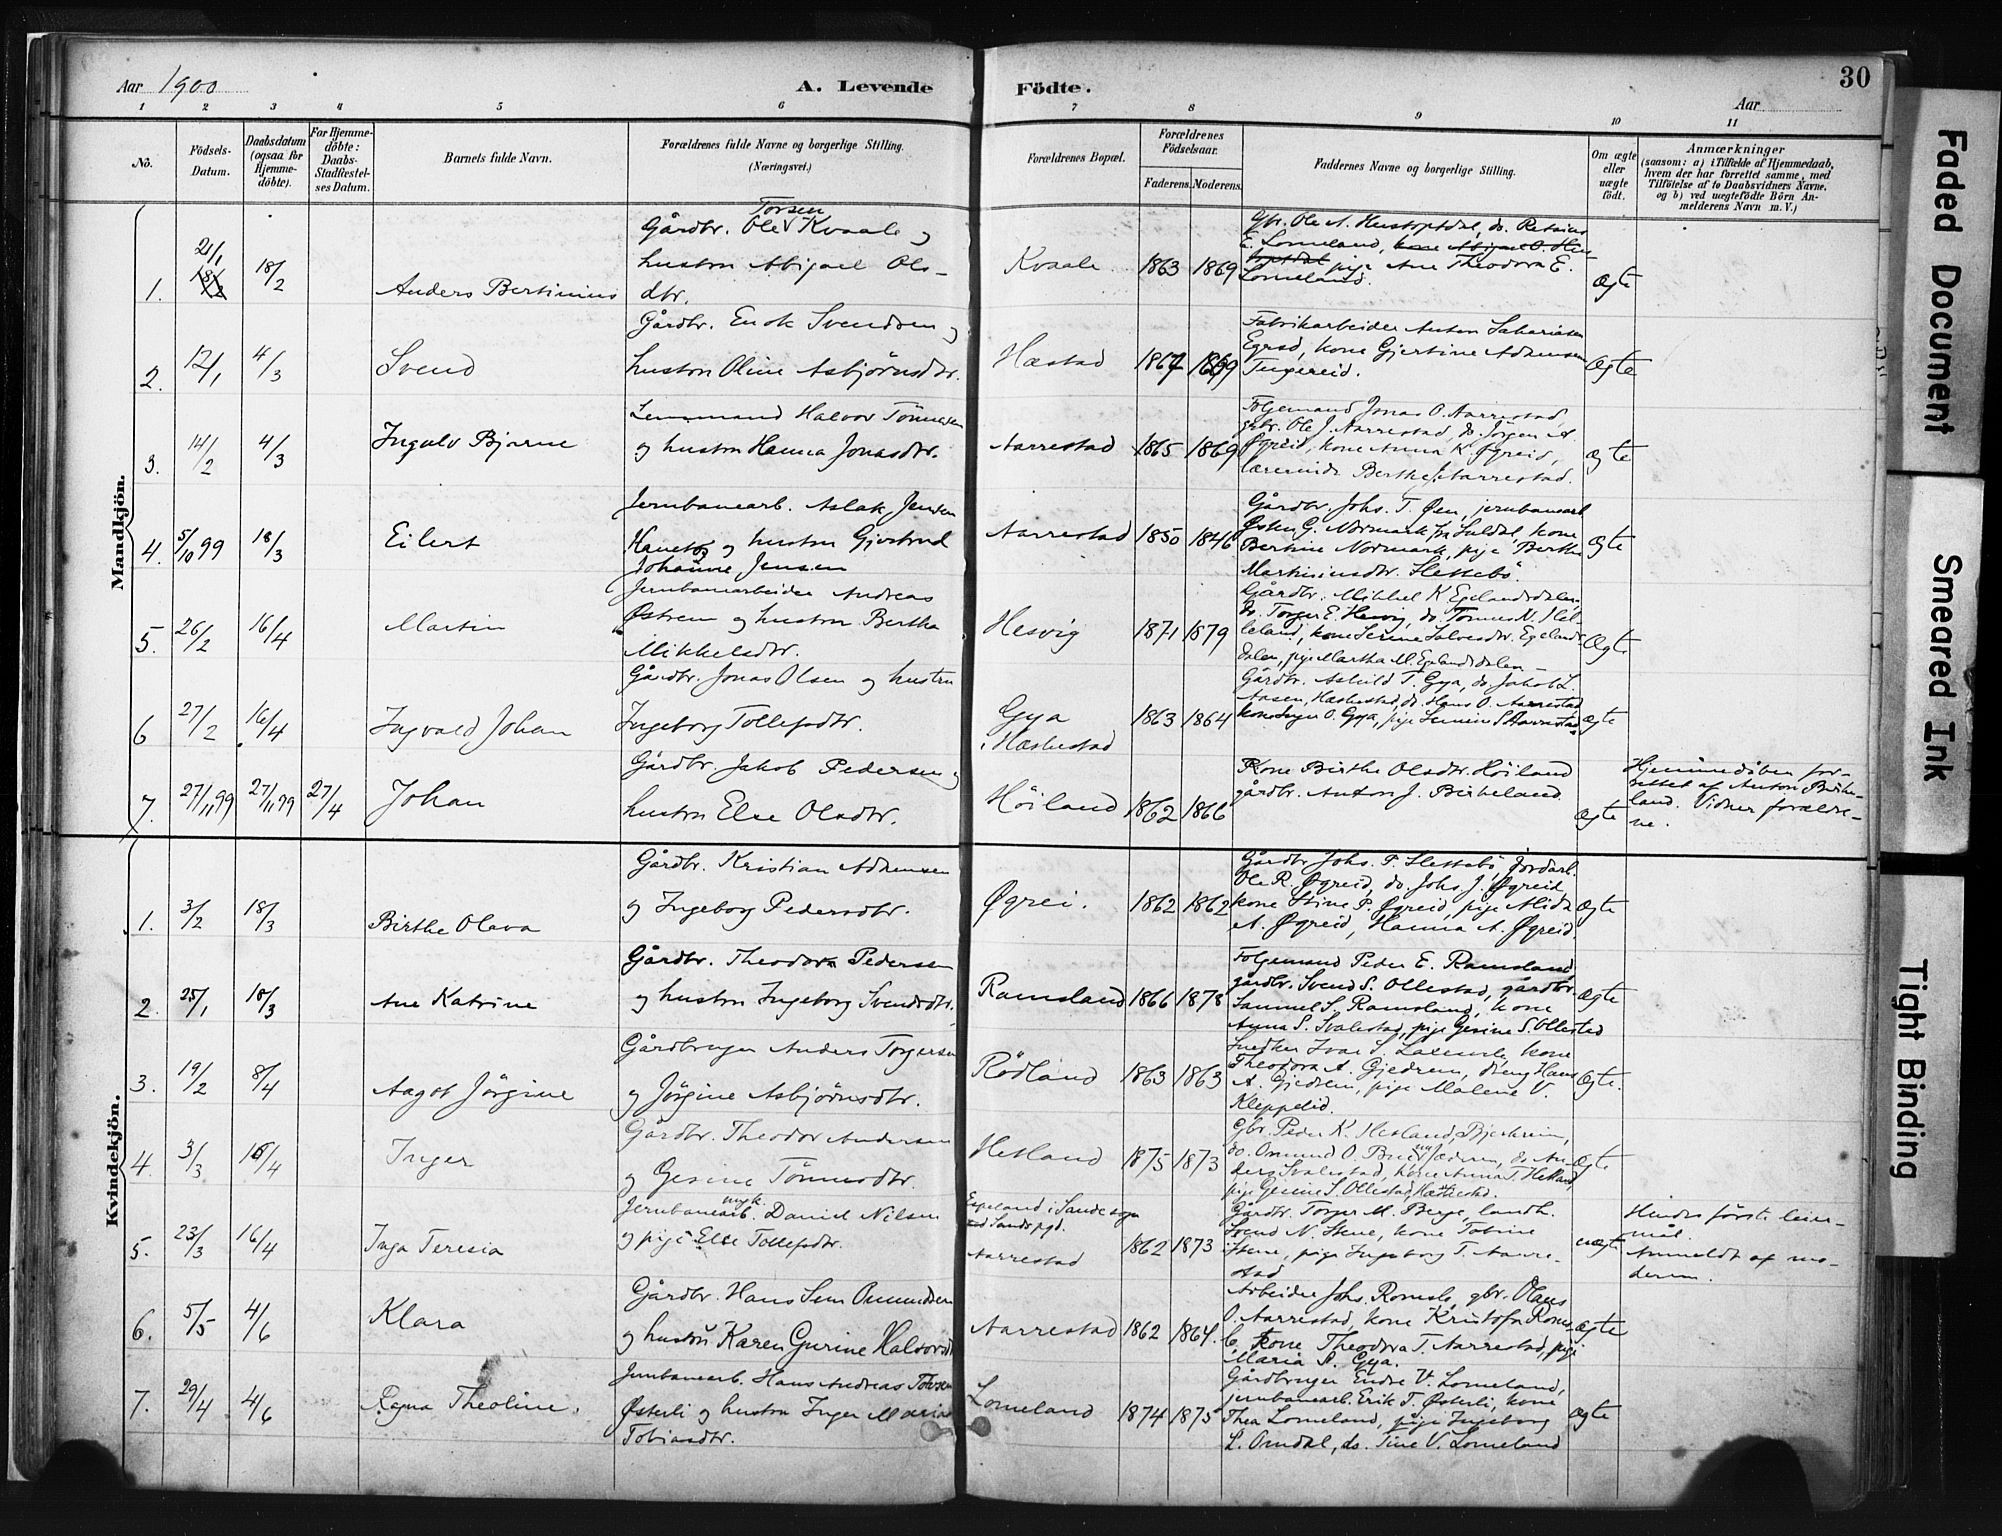 Aar 1900
A. Levende Födte.
30
Aar
1 2 3 4 5 6 7 8 9 10 11
No.
Födsels-Datum.
Daabsdatum (ogsaa for Hjemme-döbte).
For Hjemme-döbte: Daabs-Stadfæstel-ses Datum.
Barnets fulde Navn.
Forældrenes fulde Navne og borgerlige Stilling. (Næringsvei.)
Forældrenes Bopæl.
Forældrenes Födselsaar.
Faderens. Moderens.
Faddernes Navne og borgerlige Stilling.
Om ægte eller uægte födt.
Anmærkninger
(saasom: a) i Tilfælde af Hjemmedaab,
hvem der har forrettet samme, med
Tilföielse af to Daabsvidners Navne.
og b) ved uegtefödte Börn An-
melderens Navn m. V.)
Mandkjön.
1. 21/1 18/2 Anders Bertinius
Torsen
Gårdbr. Ole Kvaale og
hustru Abigael Ols-
dtr.
Kvaale 1863 1869
Gbr. Ole A. Hustoptdal, do. Retsius
E. Lomeland, kone Abigael O. Hus
toptdal pige Ane Theodora E.
Lomeland.
Ægte
2. 12/1 4/3 Svend
Gårdbr. Enok Svendsen og
hustru Oline Asbjørnsdtr.
Hæstad 1867 1869
Fabrikarbeider Anton Sakariasen
Egesd, kone Gjertine Adnensen
Tengereid.
Ægte
3. 14/2 4/3 Ingulv Bjarne
Lensmand Halvor Tönnesen
og hustru Hanna Jonasdtr.
Aarrestad 1865 1869
Folgemand Jonas O. Aarrestad,
gbr. Ole J. Aarrestad, do. Jörgen A.
Øgreid, kone Anna K. Øgreid,
lærerinde Berthe J. Aarrestad.
Ægte
4. 5/10 99 18/3 Eilert
Jernbanearb. Aslak Jensen
Haneto og hustru Gjertrud
Johanne Jensen
Aarrestad 1850 1846
Gårdbr. Johs. T. Øen, jernbanearb
Østen G. Normark fra Suldal, kone
Bertine Normark, pige Berthe
Martiniusdtr. Slettebö.
Ægte
5. 26/2 16/4 Martin
Jernbanearbeider Andreas
Østrem og hustru Bertha
Mikkelsdtr.
Hesvig 1871 1879
Gårdbr. Mikkel K Egelandsdalen,
do. Torger E. Hesvig, do. Tönnes N. Hel-
leland, kone Serine Salvesdtr. Egelands-
dalen, pige Martha M. Egelandsdalen
Ægte
6 27/2 16/4 Ingvald Johan
Gårdbr. Jonas Olsen og hustru
Ingeborg Tollefsdtr.
Gya
i Hæskestad
1863 1864
Gårdbr. Askild T. Gya, do. Jakob L.
Aasen, Hæskestad, do. Hans O. Aarrestad
kone Inger O. Gya, pige Serine S Aarrestad
Ægte
7. 27/11 99 27/11 99 27/4 Johan
Gårdbr. Jakob Pedersen og
hustru Else Olsdtr.
Höiland 1862 1866
Kone Birthe Olsdtr. Höiland
gårdbr. Anton J. Birkeland.
Ægte
Hjemmedåben for-
rettet af Anton Birke-
land. Vidner foreldre-
ne.
Kvindekjön.
1. 3/2 18/3 Birthe Olava
Gårdbr. Kristian Adnensen
og Ingeborg Pedersdtr.
Øgrei. 1862 1862
Gårdbr Johs. P. Slettebö, Jordarb.
Ole R. Øgreid, do. Johs J. Øgreid
kone Stine P. Øgreid, pige Alida
A. Øgreid, Hanna A. Øgreid.
Ægte
2. 25/1 18/3 Ane Katrine
Gårdbr. Theodor Pedersen
og hustru Ingeborg Svendsdtr.
Ramsland 1866 1878
Folgemand Peder E. Ramsland,
gårdbr. Svend S. Ollestad, gårdbr.
Samuel S. Ramsland, kone
Anna S. Svalestad, pige Gesine S. Ollestad
Ægte
3. 19/2 8/4 Aagot Jörgine
Gårdbruger Anders Torgersen
og Jörgine Asbjörnsdtr.
Rödland 1863 1863
Snedker Ivar S. kone
Theodora A. Gjedrem, dreng Hans
A. Gjedrem, pige Malene V.
Kleppelid.
Ægte.
4. 3/3 16/4 Inger
Gårdbr. Theodor Andersen
og Gesine Tönnesdtr.
Hetland 1875 1873
Gbr. Peder K. Hetland, Bjerkreim,
do. Omund O. Jæderen, do. An-
ders Svalestad, kone Anna T. Hetland,
pige Gesine S. Ollestad, Hæskestad.
Ægte
5. 23/3 16/4 Inga Teresia
Jernbanearb. Daniel Nilsen
og pige Else Tollefsdtr.
Espeland i Sande sogn
Sands pgd.
Aarrestad
1862 1873
Gårdbr. Torger M. Berge, landh.
Svend N. Stene, kone Tobine
Stene, pige Ingeborg T. Aarre-
stad
uægte
Hendes förste leier-
mål.
Anmeldt af mo-
deren.
6. 5/5 4/6 Klara
Gårdbr. Hans Sem Omundsen
og hustru Karen Gurine Halvorsdtr
Aarrestad 1862 1864.
Arbeider Johs. Romslo, gbr. Olaus
O. Aarrestad, kone Kristofa Roms-
lo, kone Theodora T. Aarrestad, pige
Maria A. Gya.
Ægte
7. 29/4 4/6 Ragna Theoline.
Jernbanearb. Hans Andreas Tolvsen
Österli og hustru Inger Maria
Tobiasdtr.
Lomeland 1874 1875
Gårdbruger Endre V. Lomeland,
jernbanearb. Erik T. Österli, kone
Thea Lomeland, pige Ingeborg
L. Omdal, do. Tine V. Lomeland
Ægte
Faded Document
Smeared Ink
Tight Binding